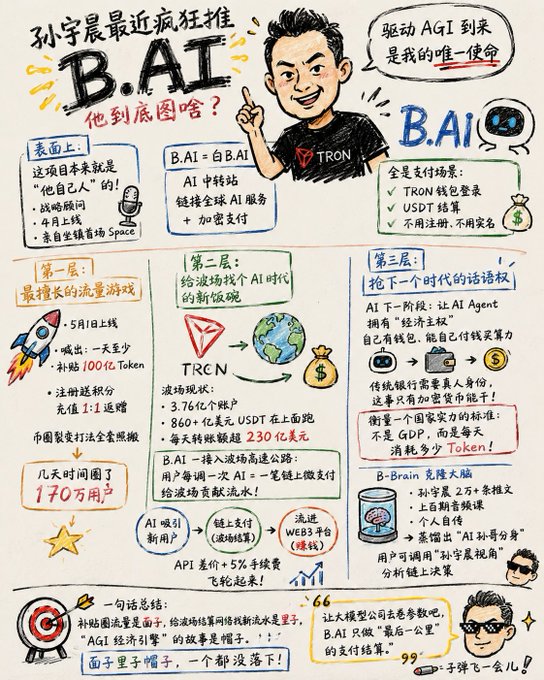 孙宇晨最近疯狂推
B.AI
他到底图啥？
驱动 AGI 到来
是我的唯一使命
TRON
B.Ai
表面上：
这项目本来就是
“他自己人”的！
• 战略顾问
• 4月上线
• 亲自坐镇首场 Space
B.AI = 白B.AI
AI 中转站
链接全球 AI 服务
+ 加密支付
全是支付场景：
✓ TRON 钱包登录
✓ USDT 结算
✓ 不用注册、不用实名
第一层：
最擅长的流量游戏
• 5月1日上线
• 喊出：一天至少
补贴 100亿 Token
• 注册送积分
充值 1:1 返赠
币圈裂变打法全套照搬
几天时间圈了
170万用户
第二层：
给波场找个 AI 时代
的新饭碗
TRON
波场现状：
• 3.76亿个账户
• 860+ 亿美元 USDT 在上面跑
• 每天转账额超 230 亿美元
B.AI 一接入波场高速公路：
用户每调一次 AI = 一笔链上微支付
给波场贡献流水！
AI 吸引
新用户
链上支付
(波场结算)
流进
WEB3 平台
(赚钱)
API 差价 + 5% 手续费
飞轮起来！
第三层：
抢下一个时代的话语权
AI 下一阶段：让 AI Agent
拥有“经济主权”
自己有钱包、能自己付钱买算力
传统银行需要真人身份，
这事只有加密货币能干！
衡量一个国家实力的标准：
不是 GDP，而是每天
消耗多少 Token！
B-Brain 克隆大脑
• 孙宇晨 2万+ 条推文
• 上百期音频课
• 个人自传
→ 蒸馏出 “AI 孙哥分身”
用户可调用“孙宇晨视角”
分析链上决策
一句话总结：
补贴圈流量是面子，给波场结算网络找新流水是里子，
“AGI 经济引擎” 的故事是帽子。
面子里子帽子，一个都没落下！
“ 让大模型公司去卷参数吧，
B.AI 只做“最后一公里”
的支付结算。 ”
子弹飞一会儿！